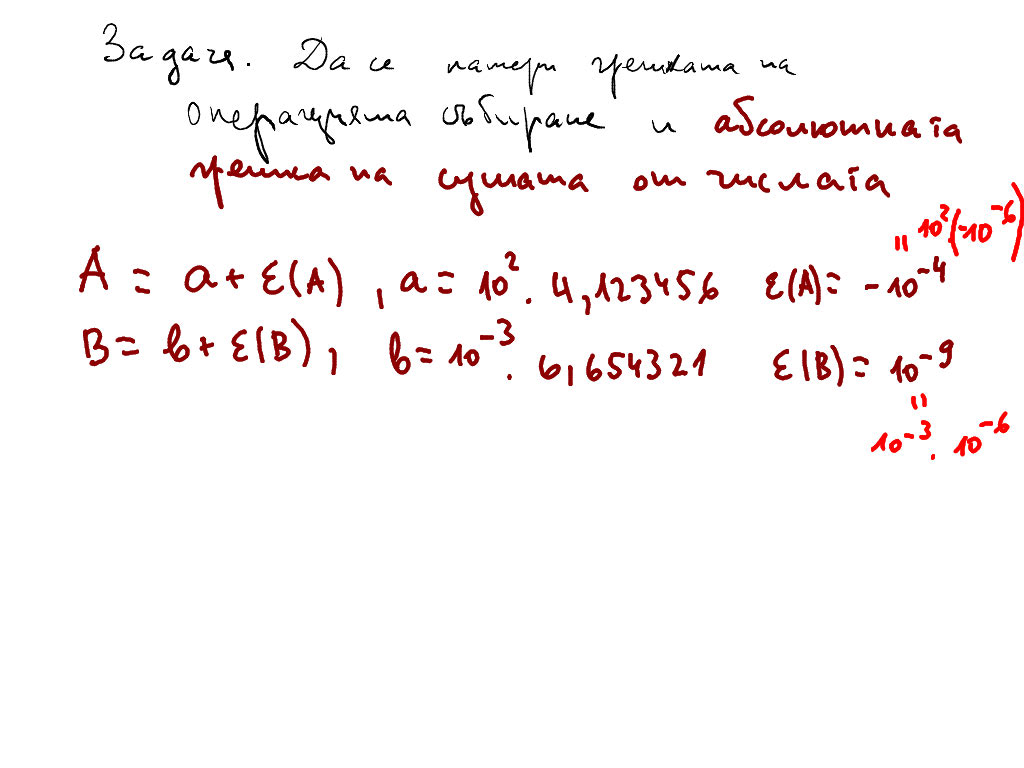 Задача. Да се намери грешката на
операцията събиране и абсолютната
грешка на сумата от числата
= 10²(-10⁻⁶)
A = a + ε(A), a = 10². 4,123456 ε(A) = -10⁻⁴
B = b + ε(B), b = 10⁻³. 6,654321 ε(B) = 10⁻⁹
=
10⁻³. 10⁻⁶